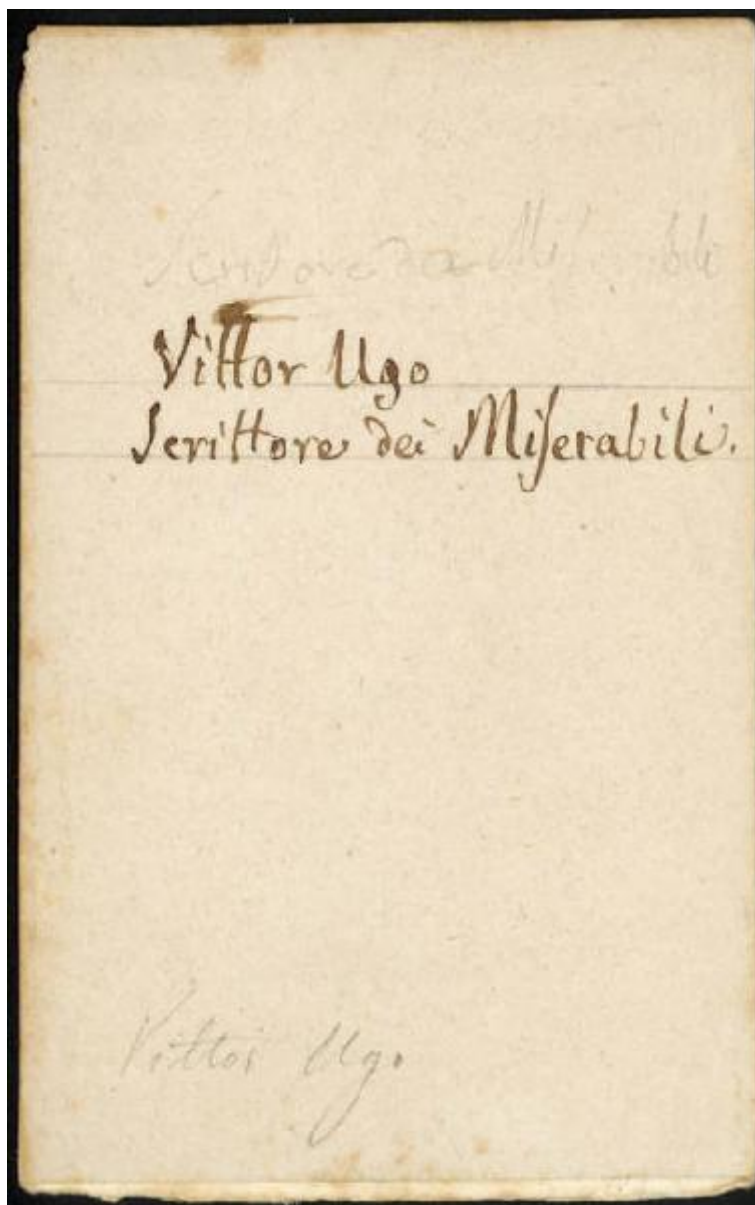 Scrittore dei Miserabili
Vittor Ugo
Scrittore dei Miſerabili.
Vittor Ugo